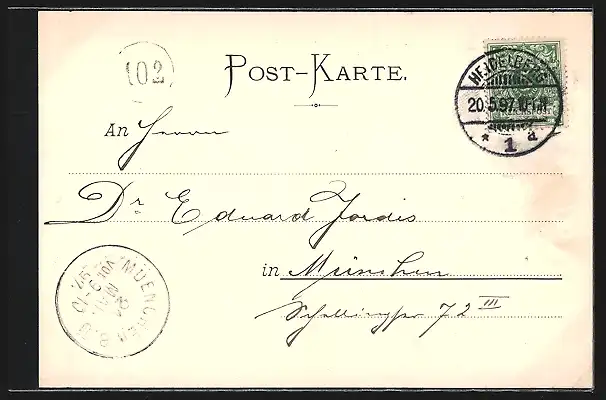 102
POST-KARTE.
HEIDELBERG
20.5.97.10-11.V.
* 1 a
An Herrn
Dr. Eduard Jordis
in München
Schellingstr 72 III
MUENCHEN
MAI
97